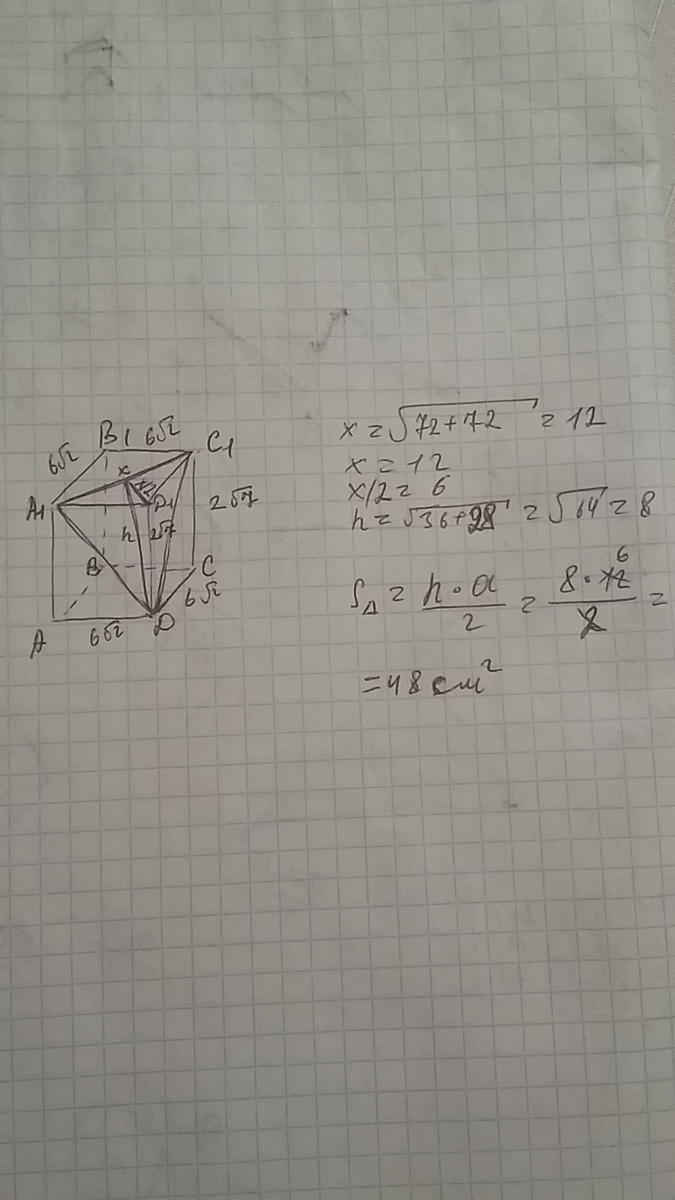 B1 6√2 C1
6√2
x
A1 D1 2√7
h 2√7
B C
6√2
A 6√2 D
x = √72+72 = 12
x = 12
x/2 = 6
h = √36+28 = √64 = 8
S△ = h·a/2 = 8·12/2 =
6
= 48 см²